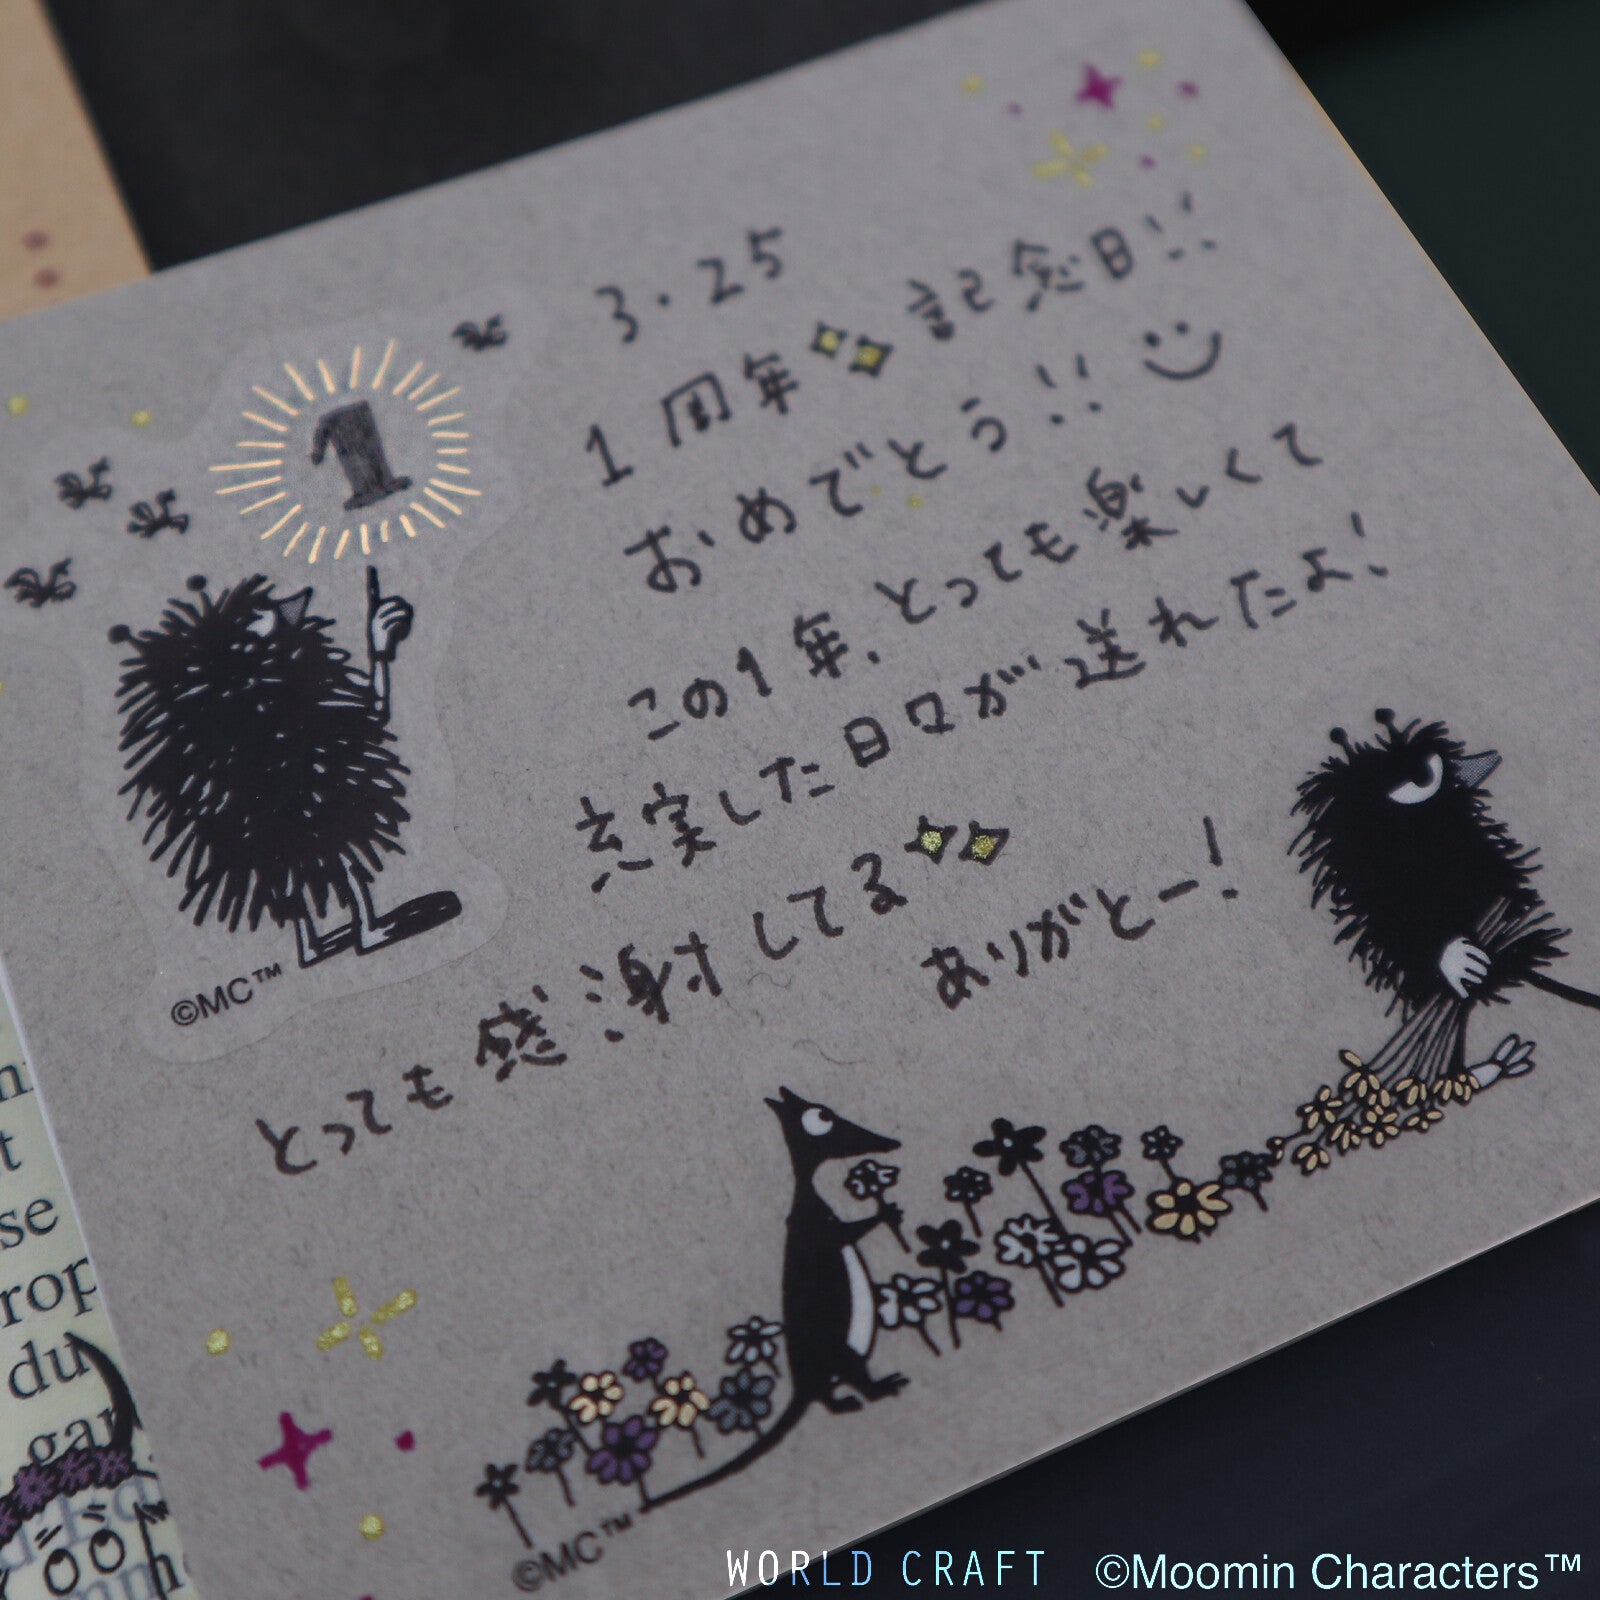 3.25
1周年 記念日!!
おめでとう!!
この1年、とっても楽しくて
充実した日々が送れたよ!
とっても感謝してる
ありがとー!
1
©MC™
©MC™
WORLD CRAFT ©Moomin Characters™
t
se
rop
du
gar